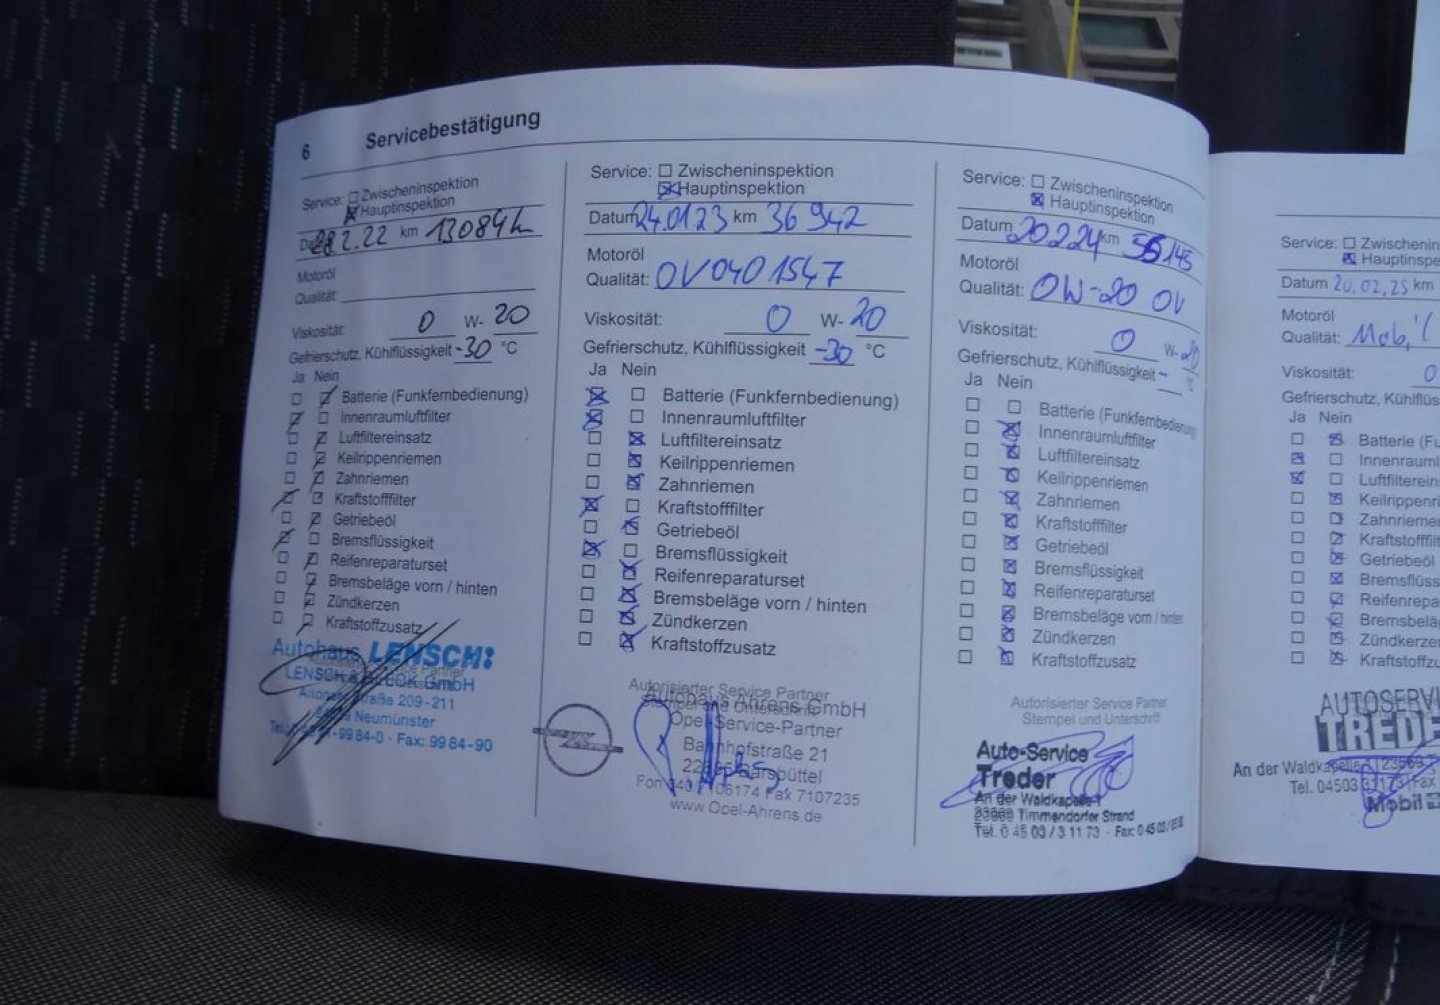 6 Servicebestätigung
Service: Zwischeninspektion
Hauptinspektion
km 13084
Motoröl
Qualität:
Viskosität: 0 W- 20
Gefrierschutz, Kühlflüssigkeit -30 °C
Ja Nein
Batterie (Funkfernbedienung)
Innenraumluftfilter
Luftfiltereinsatz
Keilrippenriemen
Zahnriemen
Kraftstofffilter
Getriebeöl
Bremsflüssigkeit
Reifenreparaturset
Bremsbeläge vorn / hinten
Zündkerzen
Kraftstoffzusatz
Autohaus LENSCH
GmbH
209-211
Neumünster
99 84-0 · Fax: 99 84-90
Service: Zwischeninspektion
Hauptinspektion
Datum 24.01.23 km 36 942
Motoröl
Qualität: OV0401547
Viskosität: 0 W- 20
Gefrierschutz, Kühlflüssigkeit -30 °C
Ja Nein
Batterie (Funkfernbedienung)
Innenraumluftfilter
Luftfiltereinsatz
Keilrippenriemen
Zahnriemen
Kraftstofffilter
Getriebeöl
Bremsflüssigkeit
Reifenreparaturset
Bremsbeläge vorn / hinten
Zündkerzen
Kraftstoffzusatz
Autorisierter Service Partner
Autohaus Ahrens GmbH
Opel Service-Partner
Bahnhofstraße 21
Fax 7107235
www.Opel-Ahrens.de
Service: Zwischeninspektion
Hauptinspektion
Datum 20.2.24 km
Motoröl
Qualität: 0W-20 OV
Viskosität: 0 W- 20
Gefrierschutz, Kühlflüssigkeit - °C
Ja Nein
Batterie (Funkfernbedienung)
Innenraumluftfilter
Luftfiltereinsatz
Keilrippenriemen
Zahnriemen
Kraftstofffilter
Getriebeöl
Bremsflüssigkeit
Reifenreparaturset
Bremsbeläge vorn / hinten
Zündkerzen
Kraftstoffzusatz
Autorisierter Service Partner
Stempel und Unterschrift
Auto-Service
Treder
An der Waldkapelle 1
23669 Timmendorfer Strand
Tel. 0 45 03 / 3 11 73 · Fax: 0 45 03 /
Service: Zwischenin
Hauptinspe
Datum 20.02.25 km
Motoröl
Qualität: Mobil
Viskosität: 0
Gefrierschutz, Kühlflüss
Ja Nein
Batterie (Fu
Innenrauml
Luftfilterein
Keilrippenri
Zahnrieme
Kraftstofffilt
Getriebeöl
Bremsflüss
Reifenrepa
Bremsbeläg
Zündkerzen
Kraftstoffzu
AUTOSERVI
TREDE
An der Waldkapelle 1 | 23669
Tel. 04503 31173 | Fax
Mobil